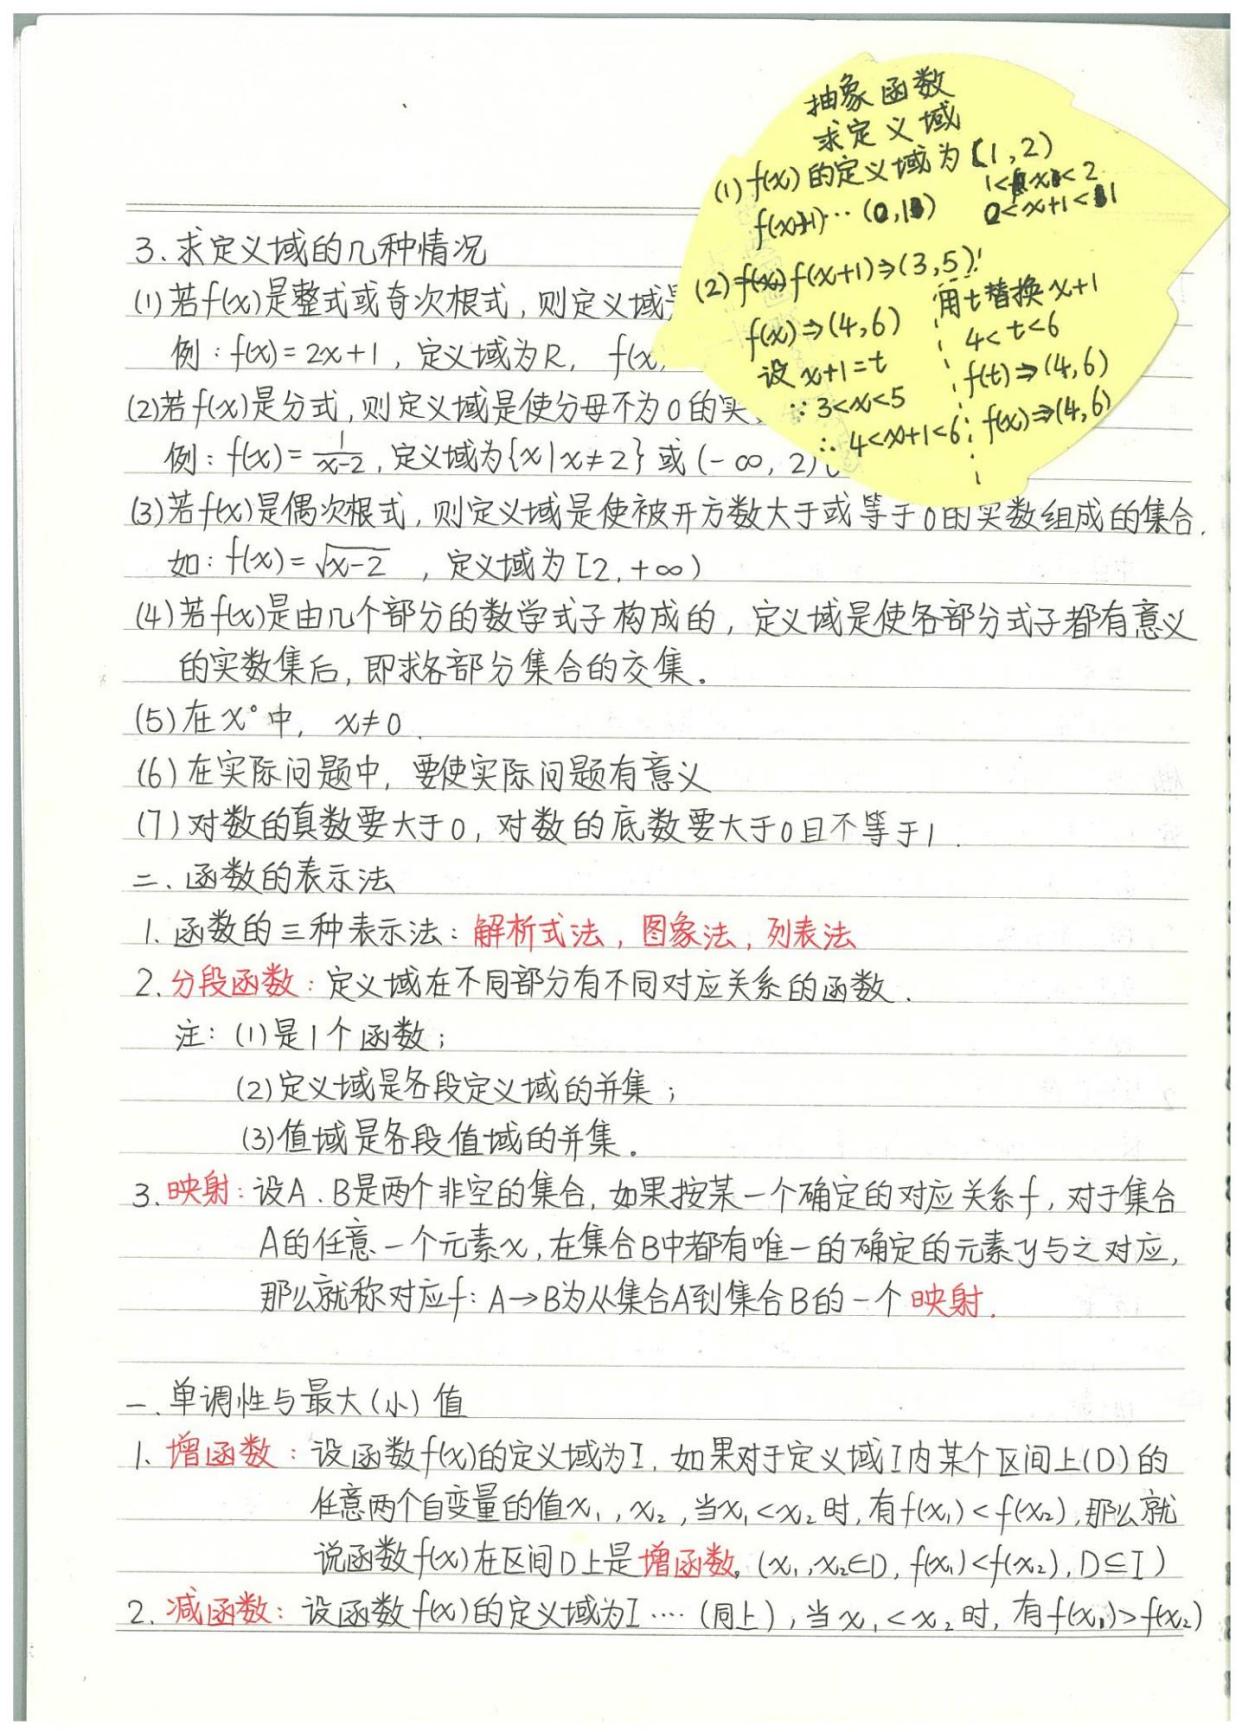 抽象函数
求定义域
(1) f(x)的定义域为(1,2)
1<x<2
f(x+1)…(0,1) 0<x+1<1
(2) f(x) f(x+1)⇒(3,5)
用t替换x+1
f(x)⇒(4,6) 4<t<6
设x+1=t f(t)⇒(4,6)
∵3<x<5 f(x)⇒(4,6)
∴4<x+1<6
3.求定义域的几种情况
(1)若f(x)是整式或奇次根式,则定义域
例:f(x)=2x+1,定义域为R, f(x
(2)若f(x)是分式,则定义域是使分母不为0的实
例:f(x)=1/(x-2),定义域为{x|x≠2}或(-∞,2)
(3)若f(x)是偶次根式,则定义域是使被开方数大于或等于0的实数组成的集合.
如:f(x)=√(x-2) ,定义域为[2,+∞)
(4)若f(x)是由几个部分的数学式子构成的,定义域是使各部分式子都有意义
的实数集后,即求各部分集合的交集.
(5)在x°中, x≠0.
(6)在实际问题中,要使实际问题有意义
(7)对数的真数要大于0,对数的底数要大于0且不等于1.
二、函数的表示法
1.函数的三种表示法:解析式法,图象法,列表法
2.分段函数:定义域在不同部分有不同对应关系的函数.
注:(1)是1个函数;
(2)定义域是各段定义域的并集;
(3)值域是各段值域的并集.
3.映射:设A、B是两个非空的集合,如果按某一个确定的对应关系f,对于集合
A的任意一个元素x,在集合B中都有唯一的确定的元素y与之对应,
那么就称对应f:A→B为从集合A到集合B的一个映射.
一、单调性与最大(小)值
1、增函数:设函数f(x)的定义域为I,如果对于定义域I内某个区间上(D)的
任意两个自变量的值x₁,x₂,当x₁<x₂时,有f(x₁)<f(x₂),那么就
说函数f(x)在区间D上是增函数。(x₁,x₂∈D, f(x₁)<f(x₂),D⊆I)
2.减函数:设函数f(x)的定义域为I····(同上),当x₁<x₂时,有f(x₁)>f(x₂)